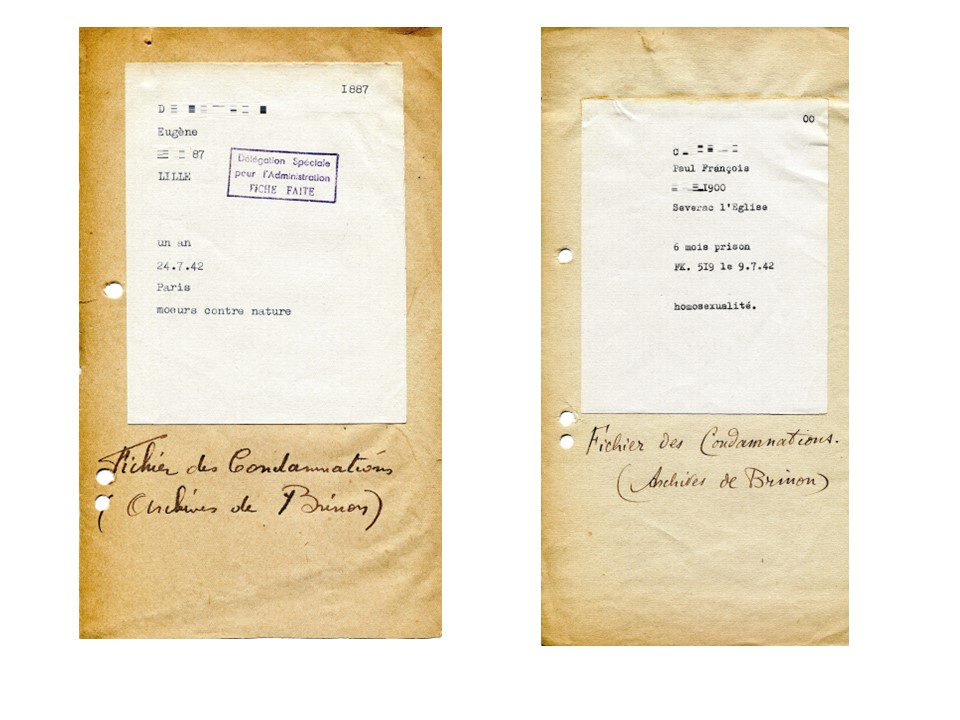 1887
D
Eugène
87
LILLE
Délégation Spéciale
pour l'Administration
FICHE FAITE
un an
24.7.42
Paris
moeurs contre nature
Fichier des Condamnations
(Archives de Brinon)
00
C
Paul François
1900
Severac l'Eglise
6 mois prison
FK. 519 le 9.7.42
homosexualité.
Fichier des Condamnations.
(Archives de Brinon)